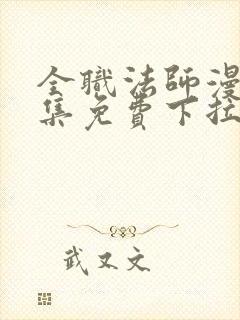 全職法師漫
集免費下拉
武又文